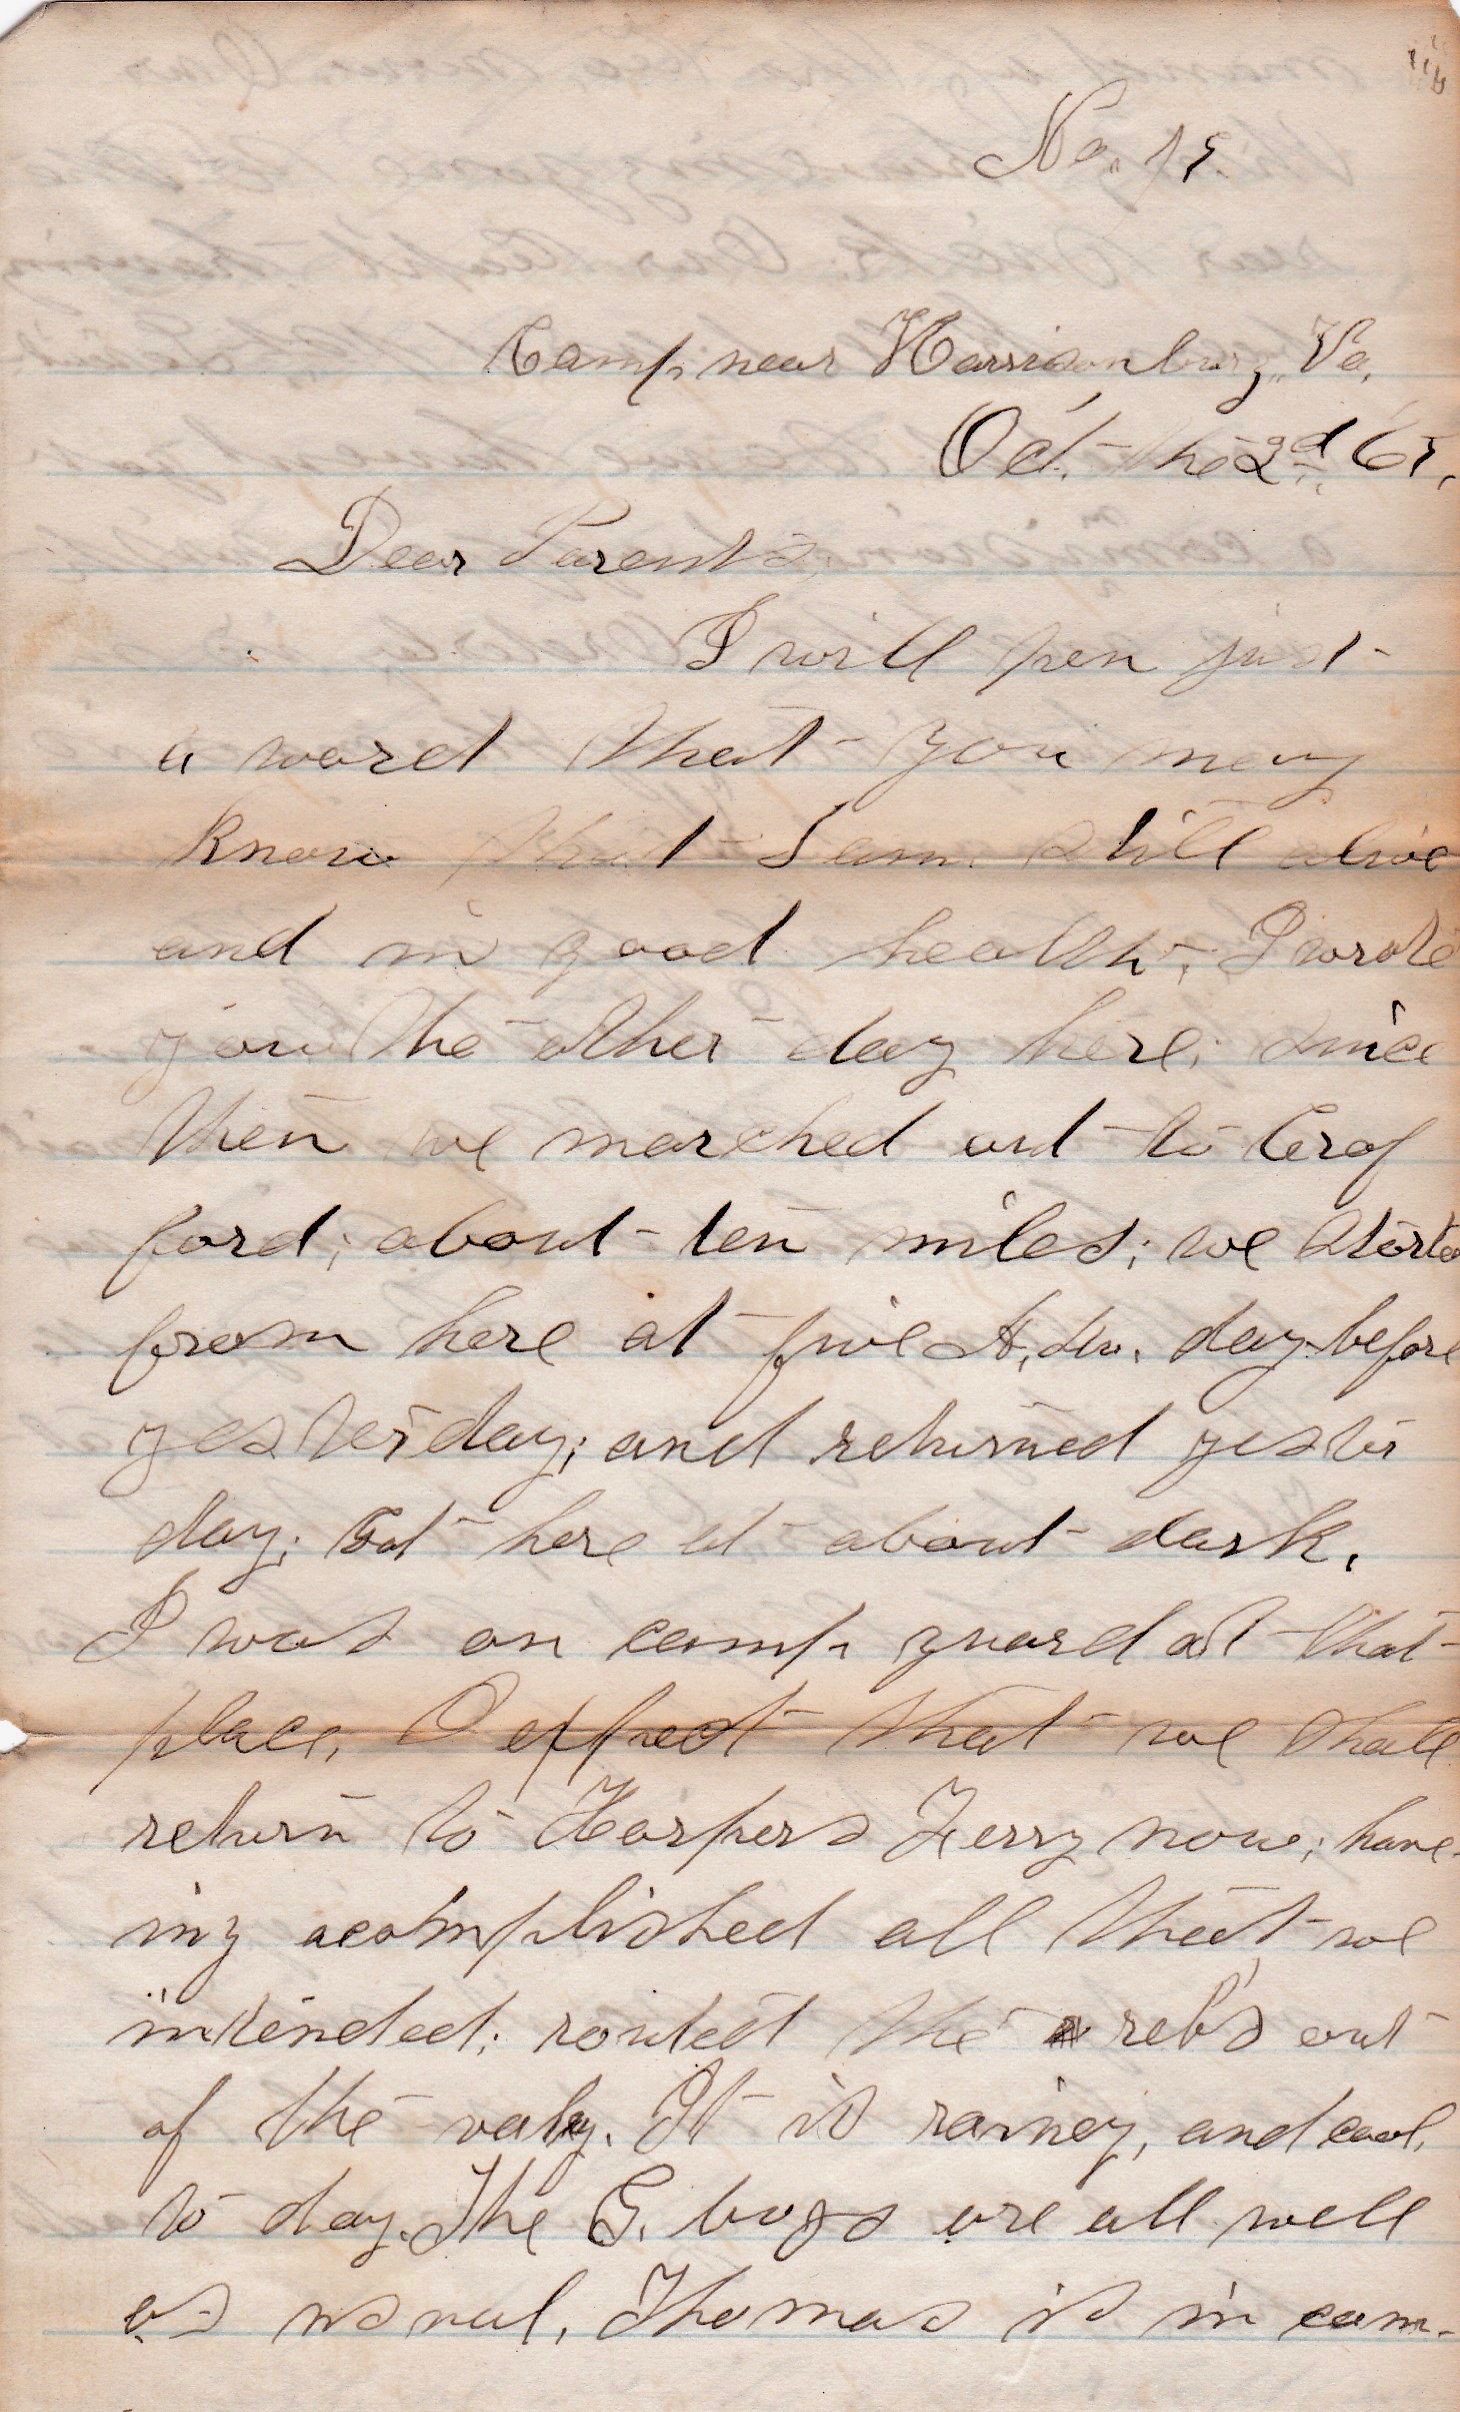 No. 19.
Camp near Harrisonburg, Va,
Oct. the 2nd, 64,
Dear Parents,
I will pen just
a word that you may
know that I am still alive
and in good health; I wrote
you the other day here; since
then we marched out to Crof
ford; about ten miles; we Storted
from here at five A,M. day before
yesterday; and returned yester
day; Got here at about dark.
I was on camp guard at that
place, I expect that we shall
return to Harpers Ferry now; have-
ing acomplished all that we
intended; routed the reb's out
of the valy. It is rainey, and cool,
to day. The G. boys are all well
as usual, Thomas is in com-